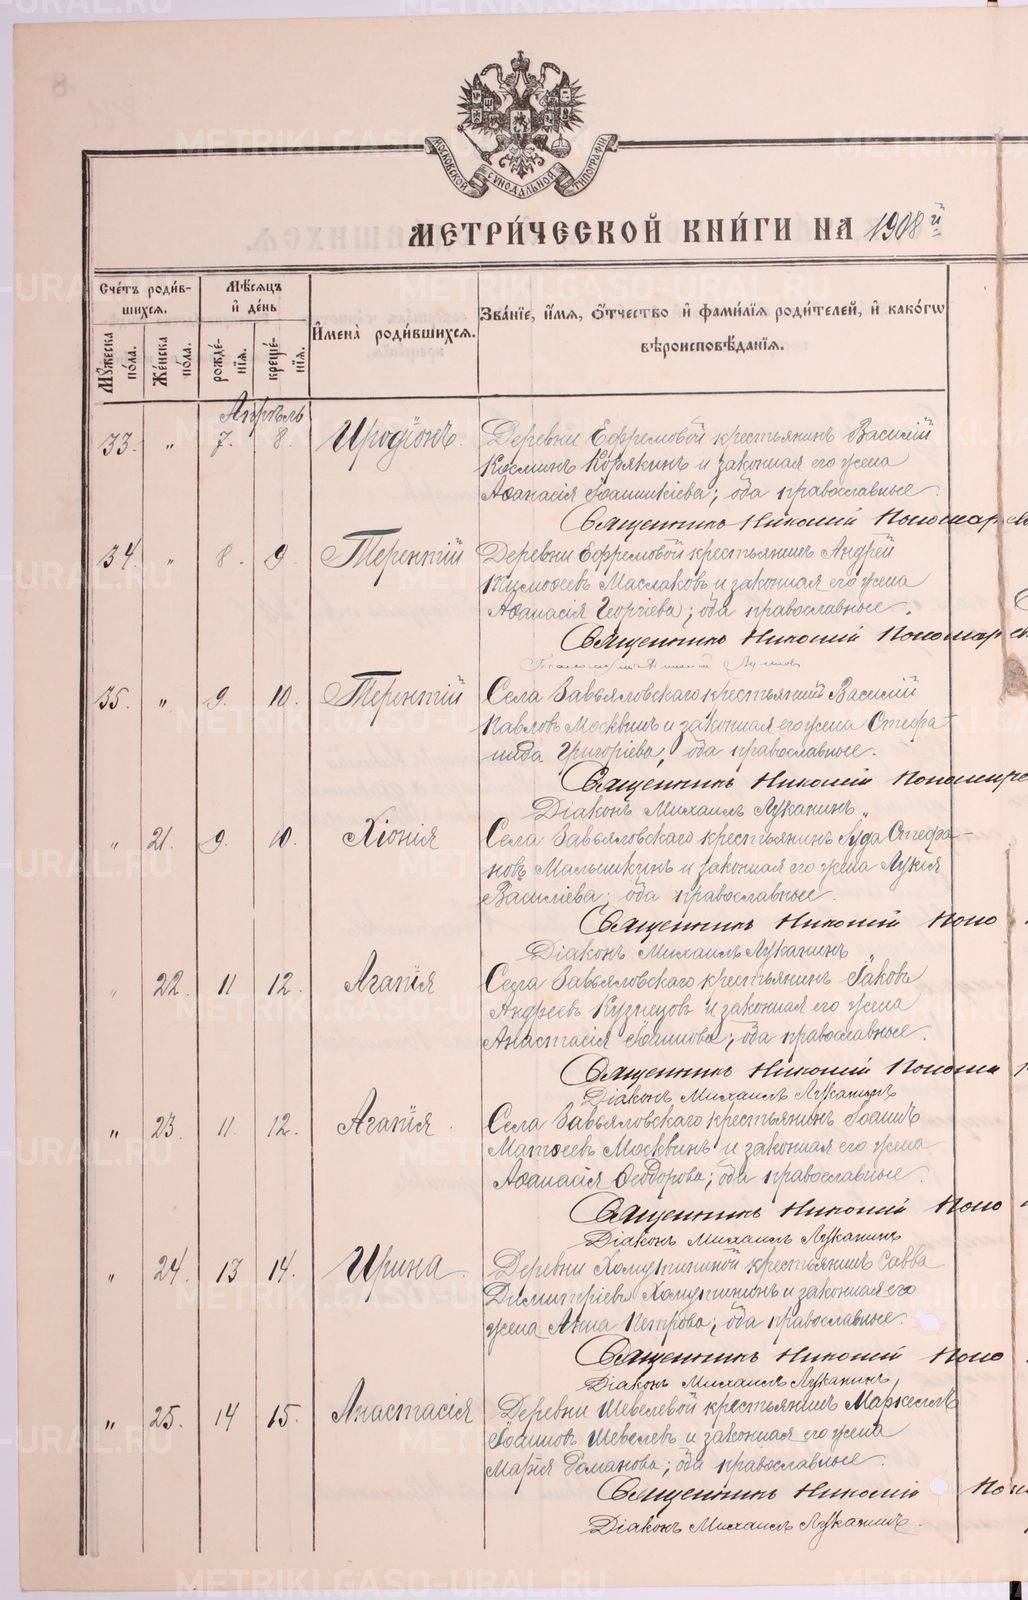 МОСКОВСКОЙ СѴНОДАЛЬНОЙ ТИПОГРАФІИ
МЕТРИ́ЧЕСКОЙ КНИ́ГИ НА 1908й
Сче́тъ роди́в-
шихсѧ.
Мѣ́сѧцъ
и҆ де́нь
Мꙋ́жеска по́ла.
Же́нска по́ла.
рожде́-
нїѧ.
креще́-
нїѧ.
И҆мена̀ роди́вшихсѧ.
Зва́нїе, и҆́мѧ, ѻ҆́тчество и҆ фами́лїѧ роди́телей, и҆ како́гѡ
вѣроисповѣ́данїѧ.
Апрѣль
33. " 7. 8. Иродіонъ. Деревни Ефремовой крестьянинъ Василій
Космин Корякинъ и законная его жена
Аѳанасія Іоанникіева; оба православные.
Священникъ Николай Пономарев
34. " 8. 9. Терентій Деревни Ефремовой крестьянинъ Андрей
Тимоѳеевъ Маслаковъ и законная его жена
Аѳанасія Георгіева; оба православные.
Священникъ Николай Пономарев
35. " 9. 10. Терентій Села Завьяловскаго крестьянинъ Василій
Павловъ Москвинъ и законная его жена Стефа-
нида Григоріева, оба православные.
Священникъ Николай Пономарев
Діаконъ Михаилъ Луканинъ
" 21. 9. 10. Хіонія Села Завьяловскаго крестьянинъ Іуда Стефа-
новъ Малышкинъ и законная его жена Лукія
Василіева; оба православные.
Священникъ Николай Поно
Діаконъ Михаилъ Луканинъ
" 22. 11 12. Агапія Села Завьяловскаго крестьянинъ Іаковъ
Андреевъ Кузнецовъ и законная его жена
Анастасія Іоаннова; оба православные.
Священникъ Николай Понома
Діаконъ Михаилъ Луканинъ
" 23. 11. 12. Агапія. Села Завьяловскаго крестьянинъ Іоаннъ
Матѳеевъ Москвинъ и законная его жена
Аѳанасія Ѳеодорова; оба православные.
Священникъ Николай Поно
Діаконъ Михаилъ Луканинъ
" 24. 13 14. Ирина. Деревни Хомутининой крестьянинъ Савва
Димитріевъ Хомутининъ и законная его
жена Анна Петрова; оба православные.
Священникъ Николай Поно
Діаконъ Михаилъ Луканинъ
" 25. 14 15. Анастасія Деревни Шевелевой крестьянинъ Маркеллъ
Іоанновъ Шевелевъ и законная его жена
Марія Романова; оба православные.
Священникъ Николай Пон
Діаконъ Михаилъ Луканинъ.
METRIKI.GASO-URAL.RU